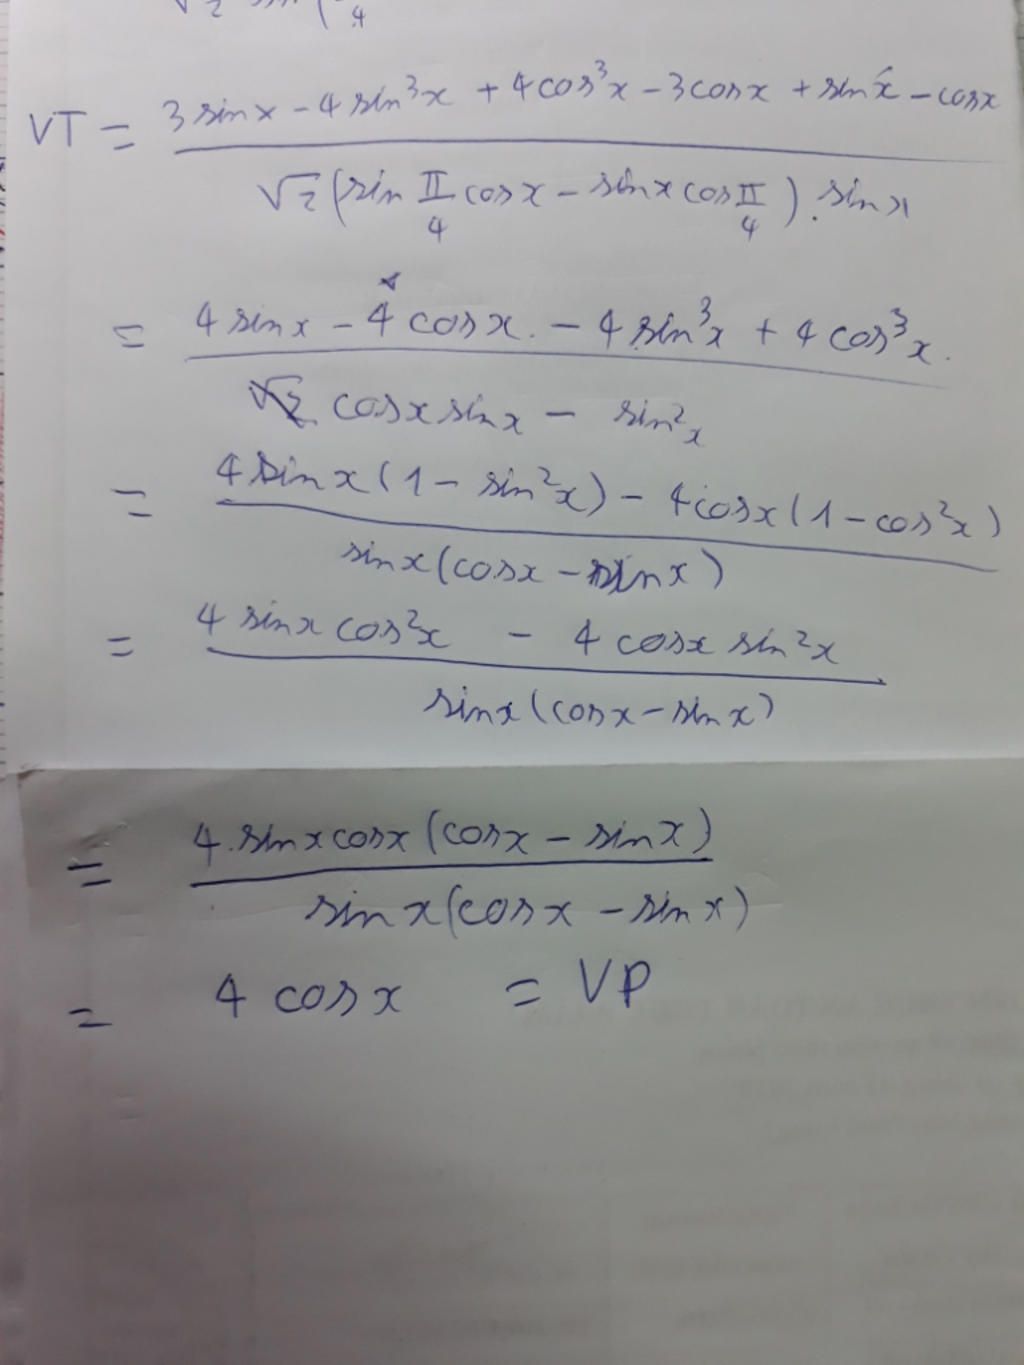 √2 sin(π/4
VT = (3sinx - 4sin³x + 4cos³x - 3cosx + sinx - cosx) / (√2(sin π/4 cosx - sinx cos π/4).sinx)
= (4sinx - 4cosx. - 4sin³x + 4cos³x.) / (cosxsinx - sin²x)
= (4sinx(1 - sin²x) - 4cosx(1 - cos²x)) / (sinx(cosx - sinx))
= (4sinxcos²x - 4cosxsin²x) / (sinx(cosx - sinx))
= (4.sinxcosx(cosx - sinx)) / (sinx(cosx - sinx))
= 4cosx = VP